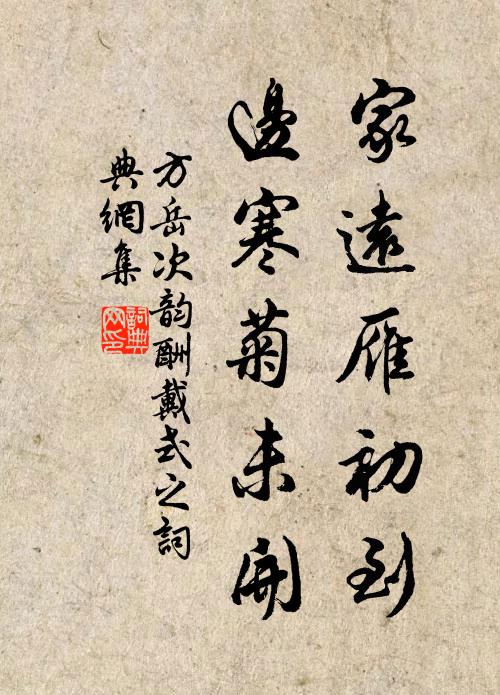 家遠雁初到
邊寒菊未開
方岳次韵酬戴式之詞
典網集
詞典网印